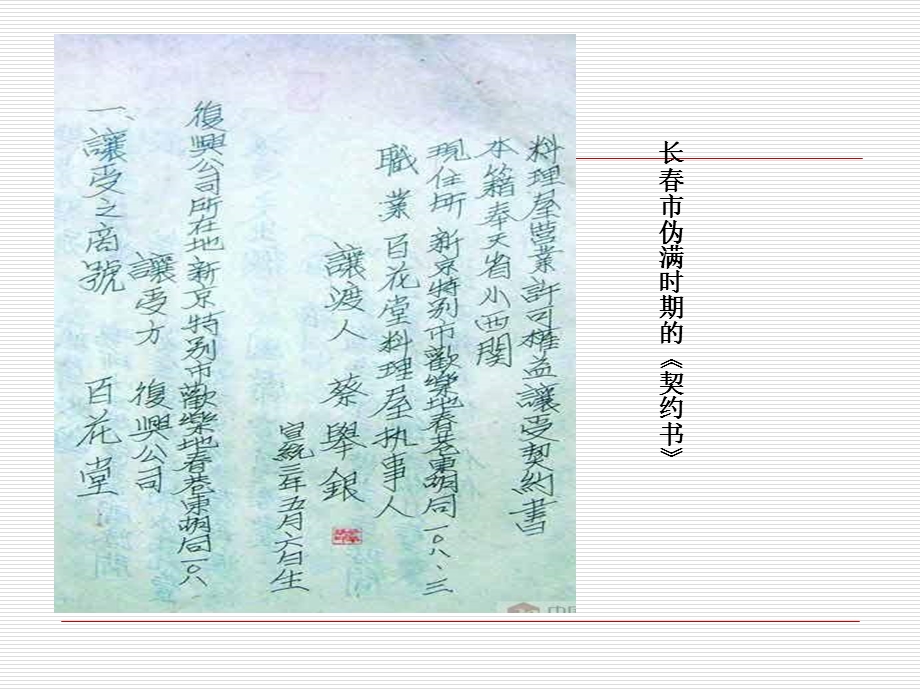 长春市伪满时期的《契约书》
料理屋营業許可權益讓受契約書
本籍奉天省小西関
現住所 新京特别市歡樂地春巷東胡同一〇八.三
職業 百花堂料理屋执事人
讓渡人 蔡舉銀
宣統三年五月六日生
復興公司所在地新京特别市歡樂地春巷東胡同一〇八
讓受方 復興公司
一、讓受之商號 百花堂